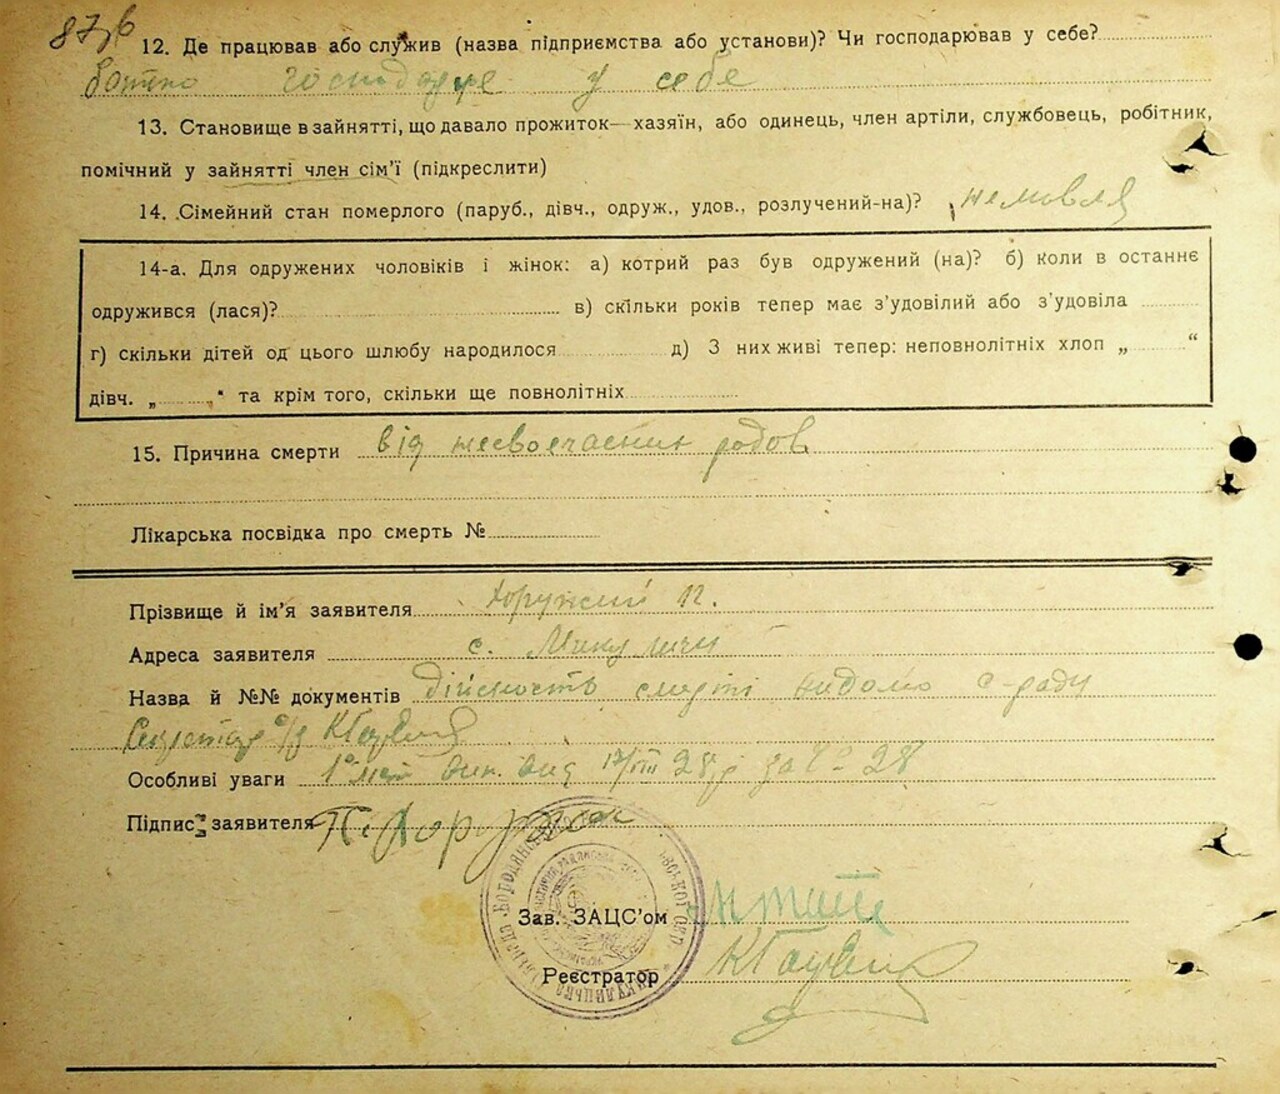 87зв
12. Де працював або служив (назва підприємства або установи)? Чи господарював у себе?
батько господарює у себе
13. Становище в зайнятті, що давало прожиток—хазяїн, або одинець, член артіли, службовець, робітник,
помічний у зайнятті член сім'ї (підкреслити)
14. Сімейний стан померлого (паруб., дівч., одруж., удов., розлучений-на)? немовля
14-а. Для одружених чоловіків і жінок: а) котрий раз був одружений (на)? б) коли в останнє
одружився (лася)? в) скільки років тепер має з'удовілий або з'удовіла
г) скільки дітей од цього шлюбу народилося д) З них живі тепер: неповнолітніх хлоп „ “
дівч. „ “ та крім того, скільки ще повнолітніх
15. Причина смерти від несвоєчасних родов
Лікарська посвідка про смерть №
Прізвище й ім'я заявителя Хоружий П.
Адреса заявителя с. Микуличи
Назва й №№ документів дійсность смерті відомо с-раду
Секретар с/р
Особливі уваги 28
Підпис заявителя П. Хоружий
Зав. ЗАЦС'ом
Реєстратор